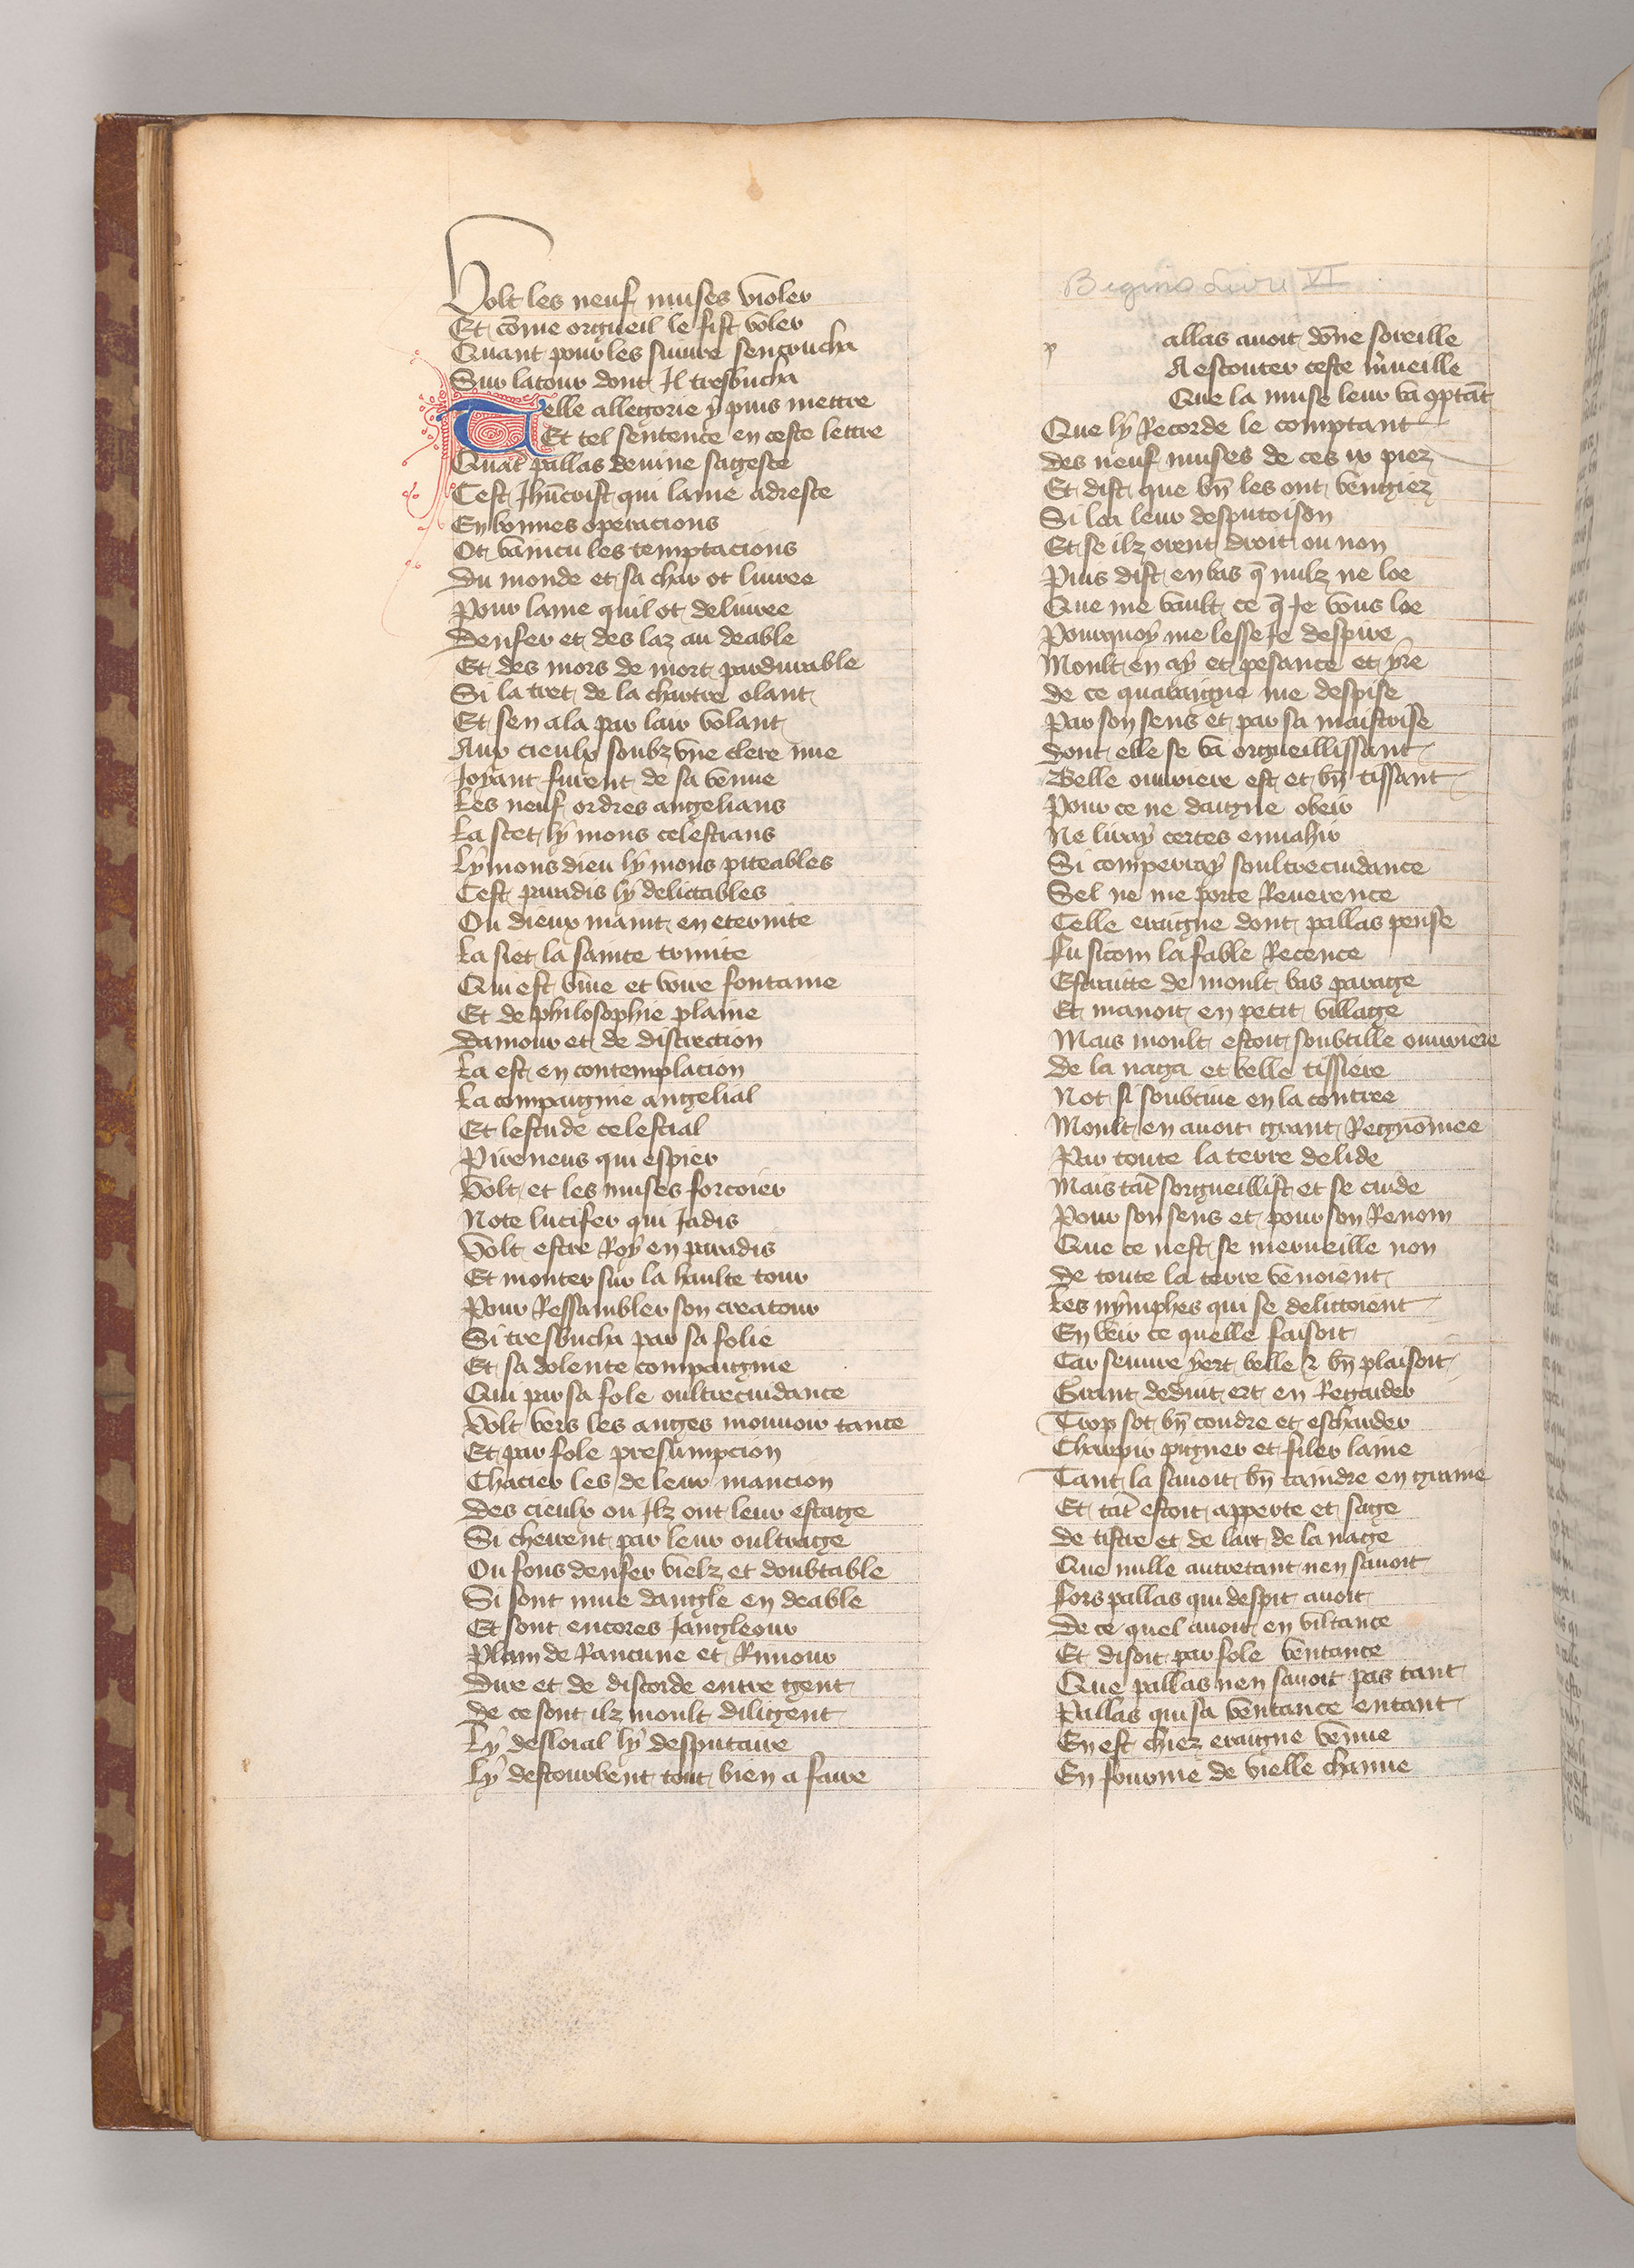 Volt les neuf muses violer
Et cōme orgueil le fist voler
Quant pour les suivre sengoucha
Sur la tour dont Il tresbucha
Telle allegorie ẏ puis mettre
Et tel sentence en ceste lettre
Quāt pallas devine sagesce
Cest Jhūcrist qui lame adresce
En bonnes operacions
Ot vaincu les temptacions
Du monde et sa char ot livree
Pour lame quil ot delivree
Denfer et des laz au deable
Et des mors de mort pardurable
Si la tret de la chartre olant
Et sen ala par lair volant
Aux cieulx soubz vne clere nue
Joyant furent de sa venue
Les neuf ordres angelians
La scet lẏ mons celestians
Lẏ mons dieu lẏ mons piteables
Cest paradis lẏ delictables
Ou dieux maint en eternite
La siet la sainte trinite
Qui est vive et voire fontaine
Et de philosophie plaine
Damour et de discrection
La est en contemplacion
La compaignie angelial
Et lestude celestial
Pireneus qui espier
Volt et les muses forcoier
Note lucifer qui Jadis
Volt estre Roẏ en paradis
Et monter sur la haulte tour
Pour Ressambler son creatour
Si tresbucha par sa folie
Et sa dolente compaignie
Qui par sa fole oultrecuidance
Volt vers les anges mouvoir tance
Et par fole presumpcion
Chacier les de leur mancion
Des cieulx ou Ilz ont leur estage
Si cheirent par leur oultrage
Ou fons denfer vielz et doubtable
Si sont mue dangle en deable
Et sont encores Jangleour
Plain de Rancune et Rimour
Dire et de discorde entre gent
De ce sont ilz moult diligent
Lẏ desloial lẏ desputaire
Lẏ destourbent tout bien a faire
Begins Livre VI
p
allas avoit dōne soreille
A escouter ceste m̄veille
Que la muse leur va ꝯptāt
Que lẏ Recorde le comptant
Des neuf muses de ces ix piez
Et dist que bn̄ les ont vengiez
Si loa leur desputoison
Et se ilz orent droit ou non
Puis dist en bas q̄ nulz ne loe
Que me vault ce q̄ Je vous loe
Pourquoẏ me lesse Je despire
Moult en aẏ et pesance et ẏre
De ce quaraigne me despise
Par son sens et par sa maistrise
Dont elle se va orgueillissant
Belle ouvriere est et bn̄ tissant
Pour ce ne daigne obeir
Ne liraẏ certes envahir
Si comperraẏ soultrecuidance
Sel ne me porte Reverence
Celle eraigne dont pallas pense
Fu sicom la fable Recence
Estraitte de moult bas parage
Et manoit en petit village
Mais moult estoit soubtille ouvriere
De la naga et belle tissiere
Not si soubtive en la contree
Moult en avoit grant Regnōmee
Par toute la terre delide
Mais tāt sorgueillist et se cuide
Pour son sens et pour son Renom
Que ce nest se merveille non
De toute la terre venoient
Les nẏmphes qui se delictoient
En veir ce quelle faisoit
Car seuvre ẏert belle ⁊ bn̄ plaisoit
Grant deduit ert en Regarder
Trop sot bn̄ coudre et escharder
Charpir pigner et filer laine
Tant la savoit bn̄ taindre en graine
Et tāt estoit apperte et sage
De tistre et de lart de la nage
Que nulle autretant nen savoit
Lors pallas qui despit avoit
De ce quel avoit en viltance
Et disoit par fole ventance
Que pallas nen savoit pas tant
Pallas qui sa ventance entant
En est chiez eraigne venue
En fourme de vielle chanue